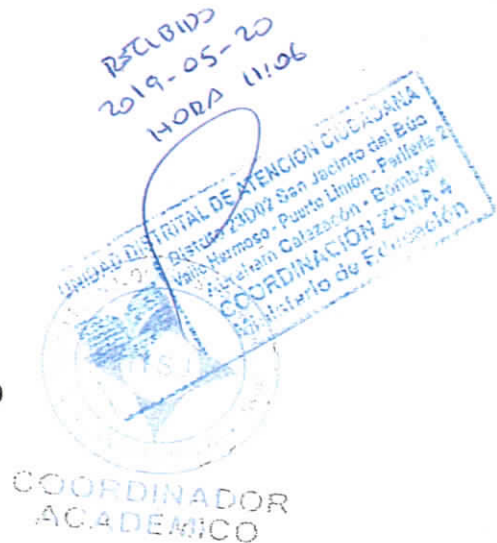 RECIBIDO
2019-05-20
HORA 11:06
UNIDAD DISTRITAL DE ATENCIÓN CIUDADANA
Distrito 23D02 San Jacinto del Búa
Valle Hermoso - Puerto Limón - Periferia 2
Abraham Calazacón - Bomboli
COORDINACIÓN ZONA 4
Ministerio de Educación
COORDINADOR
ACADÉMICO